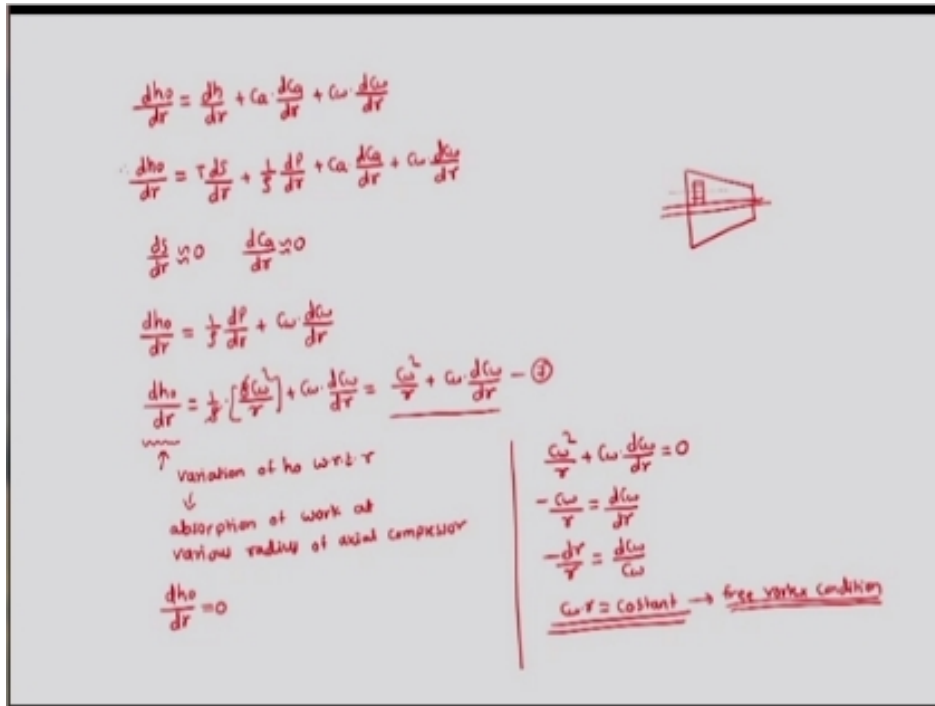 dho/dr = dh/dr + Ca·dCa/dr + Cω·dCω/dr
∴ dho/dr = T ds/dr + 1/ρ dP/dr + Ca dCa/dr + Cω dCω/dr
ds/dr ≈ 0 dCa/dr ≈ 0
dho/dr = 1/ρ dP/dr + Cω·dCω/dr
dho/dr = 1/ρ·[ρCω²/r] + Cω·dCω/dr = Cω²/r + Cω·dCω/dr –
↑ variation of ho w.r.t. r
↓
absorption of work at
various radius of axial compressor
dho/dr = 0
Cω²/r + Cω·dCω/dr = 0
-Cω/r = dCω/dr
-dr/r = dCω/Cω
Cω·r = costant → free vortex condition